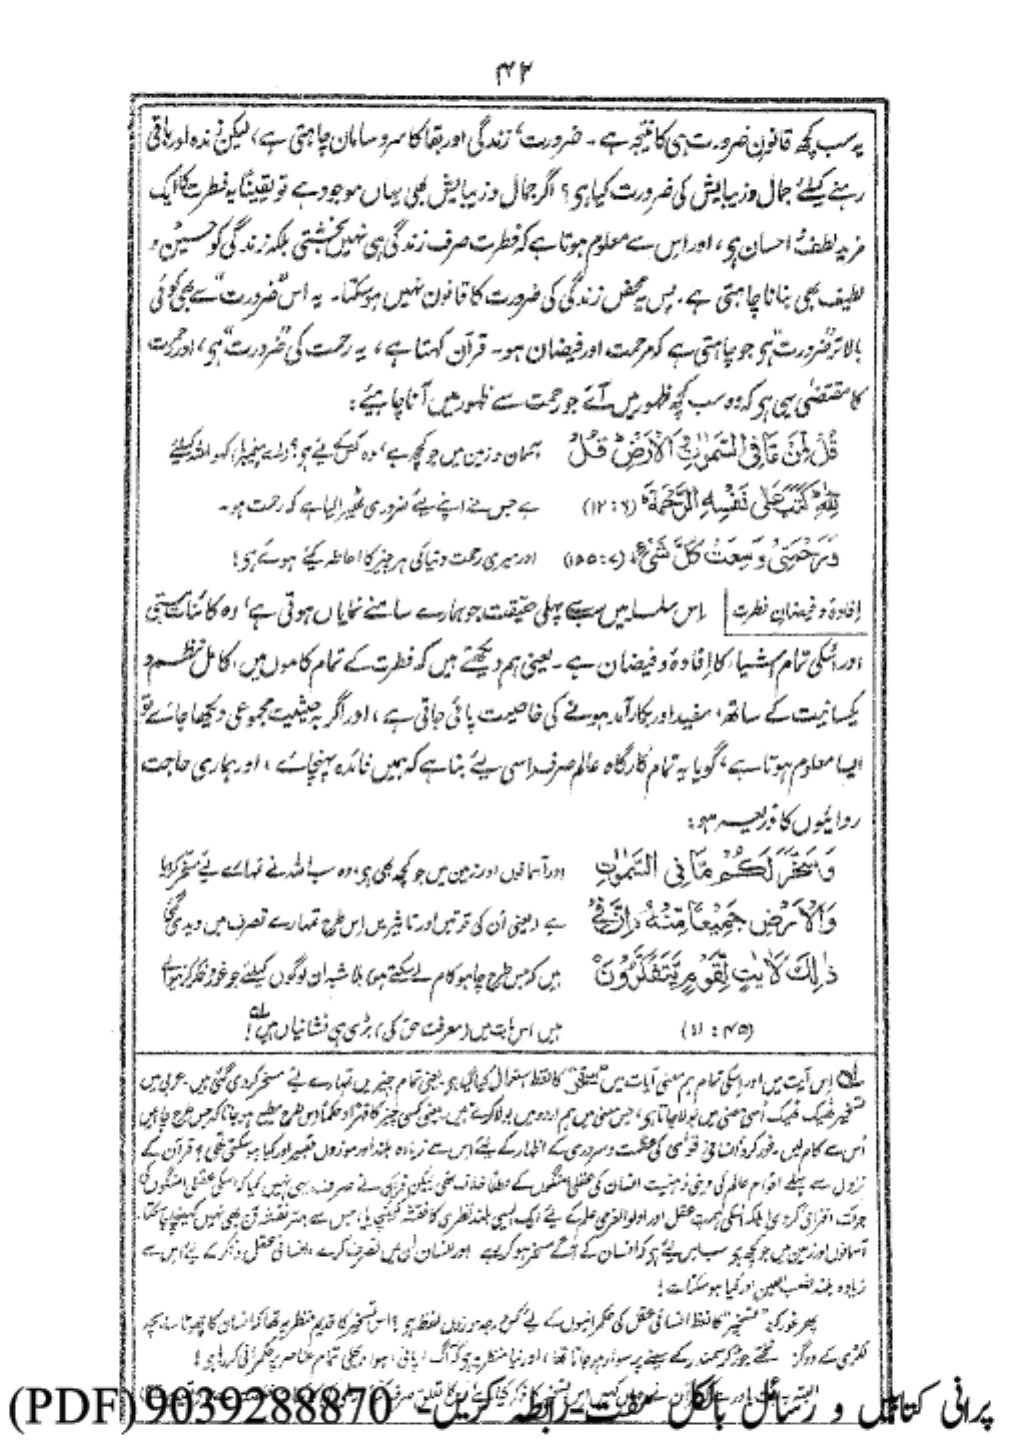 ۴۲
یہ سب کچھ قانونِ ضرورت ہی کا نتیجہ ہے۔ ضرورت، زندگی اور بقا کا سروسامان چاہتی ہے، لیکن زندہ اور باقی
رہنے کیلئے جمال و زیبایش کی ضرورت کیا ہی؟ اگر جمال و زیبایش بھی یہاں موجود ہے تو یقیناً یہ فطرت کا ایک
مزید لطف و احسان ہی، اور اس سے معلوم ہوتا ہے کہ فطرت صرف زندگی ہی نہیں بخشتی بلکہ زندگی کو حسین و
لطیف بھی بنانا چاہتی ہے۔ پس یہ محض زندگی کی ضرورت کا قانون نہیں ہو سکتا۔ یہ اس "ضرورت" سے بھی کوئی
بالاتر "ضرورت" ہی جو چاہتی ہے کہ مرحمت اور فیضان ہو۔ قرآن کہتا ہے، یہ رحمت کی "ضرورت" ہی، اور رحمت
کا مقتضیٰ یہی ہی کہ وہ سب کچھ ظہور میں آئے جو رحمت سے ظہور میں آنا چاہیئے:
قُلْ لِّمَنْ مَّا فِي السَّمٰوٰتِ وَالْاَرْضِ قُلْ آسمان و زمین میں جو کچھ ہے، وہ کس کے لیے ہی؟ (اے پیغمبر!) کہو اللہ کیلئے
لِلّٰهِ كَتَبَ عَلٰى نَفْسِهِ الرَّحْمَةَ (۶: ۱۲) ہے جس نے اپنے لیے ضروری ٹھہرا لیا ہے کہ رحمت ہو۔
وَرَحْمَتِيْ وَسِعَتْ كُلَّ شَيْءٍ (۷: ۱۵۵) اور میری رحمت دنیا کی ہر چیز کا احاطہ کیے ہوئے ہی!
افادہ و فیضانِ فطرت اس سلسلہ میں سب سے پہلی حقیقت جو ہمارے سامنے نمایاں ہوتی ہے، وہ کائنات ہستی
اور اسکی تمام اشیاء کا افادہ و فیضان ہے۔ یعنی ہم دیکھتے ہیں کہ فطرت کے تمام کاموں میں، کامل نظم و
یکسانیت کے ساتھ، مفید اور بکار آمد ہونے کی خاصیت پائی جاتی ہے، اور اگر بہ حیثیت مجموعی دیکھا جائے تو
ایسا معلوم ہوتا ہے، گویا یہ تمام کارگاہ عالم صرف اسی لیے بنا ہے کہ ہمیں فائدہ پہنچائے، اور ہماری حاجت
روائیوں کا ذریعہ ہو:
وَسَخَّرَ لَكُمْ مَّا فِي السَّمٰوٰتِ اور آسمانوں اور زمین میں جو کچھ بھی ہی، وہ سب اللہ نے تمہارے لیے مسخر کر دیا
وَالْاَرْضِ جَمِيْعًا مِّنْهُ اِنَّ فِيْ ہے (یعنی اُن کی قوتیں اور تاثیریں اس طرح تمہارے تصرف میں دیدی گئی
ذٰلِكَ لَاٰيٰتٍ لِّقَوْمٍ يَّتَفَكَّرُوْنَ ہیں کہ جس طرح چاہو کام لے سکتے ہو) بلاشبہ ان لوگوں کیلئے جو غور و فکر کرنے والے
(۴۵: ۱۱) ہیں اس بات میں (معرفت حق کی) بڑی ہی نشانیاں ہیں!
اس آیت میں اور اسکی تمام ہم معنی آیات میں کا لفظ استعمال کیا گیا ہی یعنی تمام چیزیں تمہارے لیے مسخر کر دی گئی ہیں۔ عربی میں
تسخیر ٹھیک ٹھیک اُسی معنی میں بولا جاتا ہی، جس معنی میں ہم اردو میں بولا کرتے ہیں۔ یعنی کسی چیز کا قہراً و حکماً اس طرح مطیع ہو جانا کہ جس طرح چاہیں
اُس سے کام لیں۔ غور کرو انسانی قویٰ کی عظمت و سروری کے اظہار کے لیے اس سے زیادہ بلند اور موزوں تعبیر اور کیا ہو سکتی تھی؟ قرآن کے
نزول سے پہلے اقوام عالم کی دینی ذہنیت انسان کی عقلی امنگوں کے قطعاً خلاف تھی لیکن قرآن نے صرف یہی نہیں کیا کہ اسکی عقلی امنگوں کی
جرأت افزائی کر دی بلکہ اسکی ہمتِ عقل اور اولوالعزمی علم کے لیے ایک ایسی بلند نظری کا نقشہ کھینچ دیا جس سے بہتر نقشہ آج بھی نہیں کھینچا جا سکتا۔
آسمانوں اور زمین میں جو کچھ ہو سب اس لیے ہی کہ انسان کے آگے مسخر ہو کر رہے اور انسان اُن میں تصرف کرے۔ انسانی عقل و فکر کے لیے اس سے
زیادہ بلند نصب العین اور کیا ہو سکتا ہے!
پھر غور کرو "تسخیر" کا لفظ انسانی عقل کی حکمرانیوں کے لیے کس درجہ موزوں لفظ ہی؟ اس تسخیر کا قدیم منظر یہ تھا کہ انسان کا چھوٹا سا بچہ
لکڑی کے دو گز تختے جوڑ کر سمندر کے سینے پر سوار ہو جاتا تھا، اور نیا منظر یہ ہی کہ آگ، پانی، ہوا، بجلی تمام عناصر پر حکمرانی کر رہا ہی!
پرانی کتابیں و رسائل بالکل مفت۔ رابطہ کریں۔ 9039288870 (PDF)